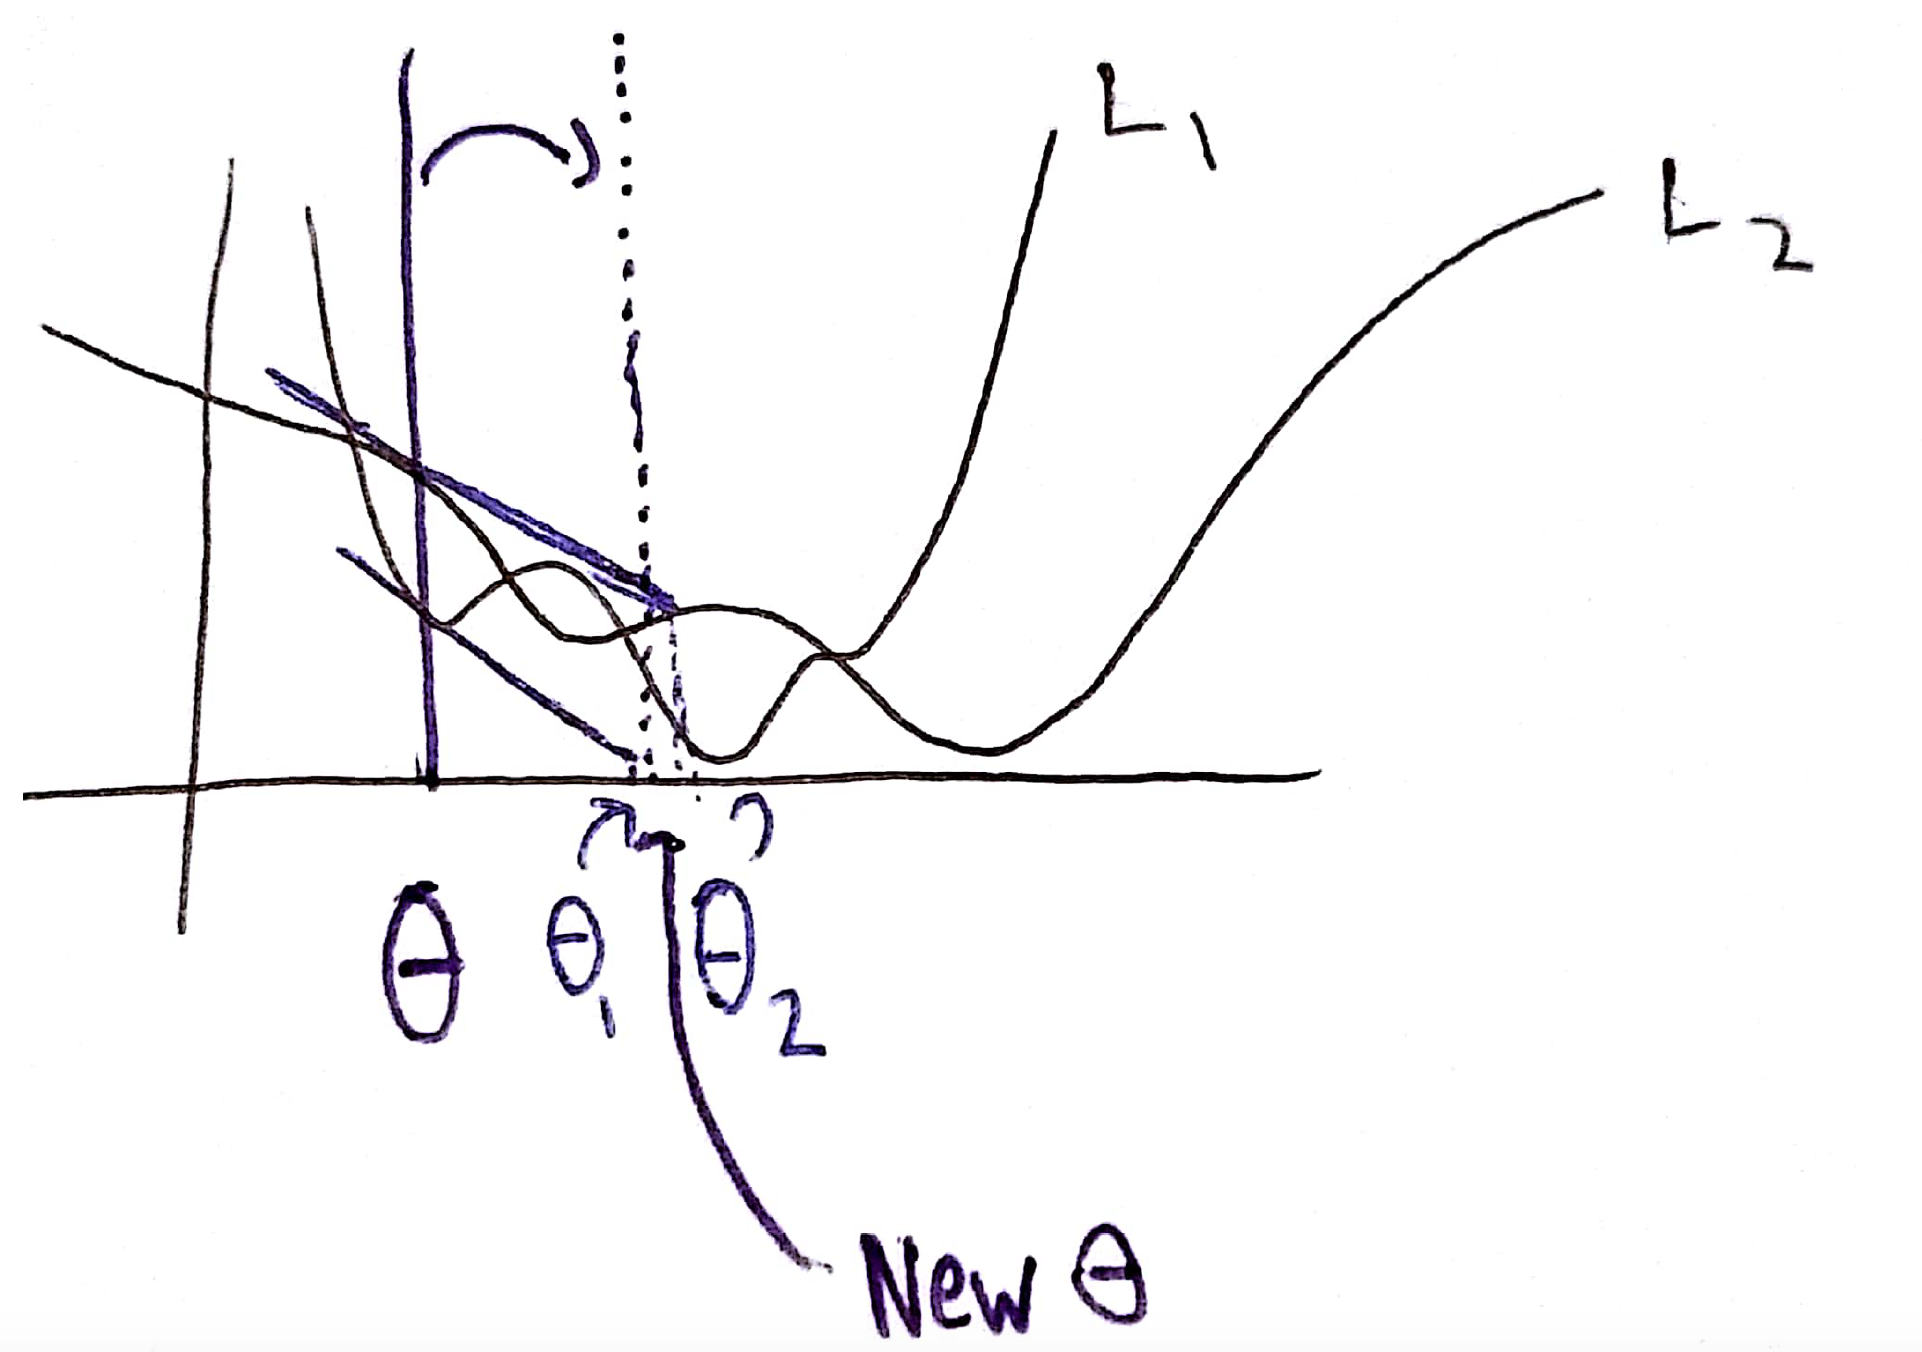 L1
L2
θ θ1 θ2
New θ